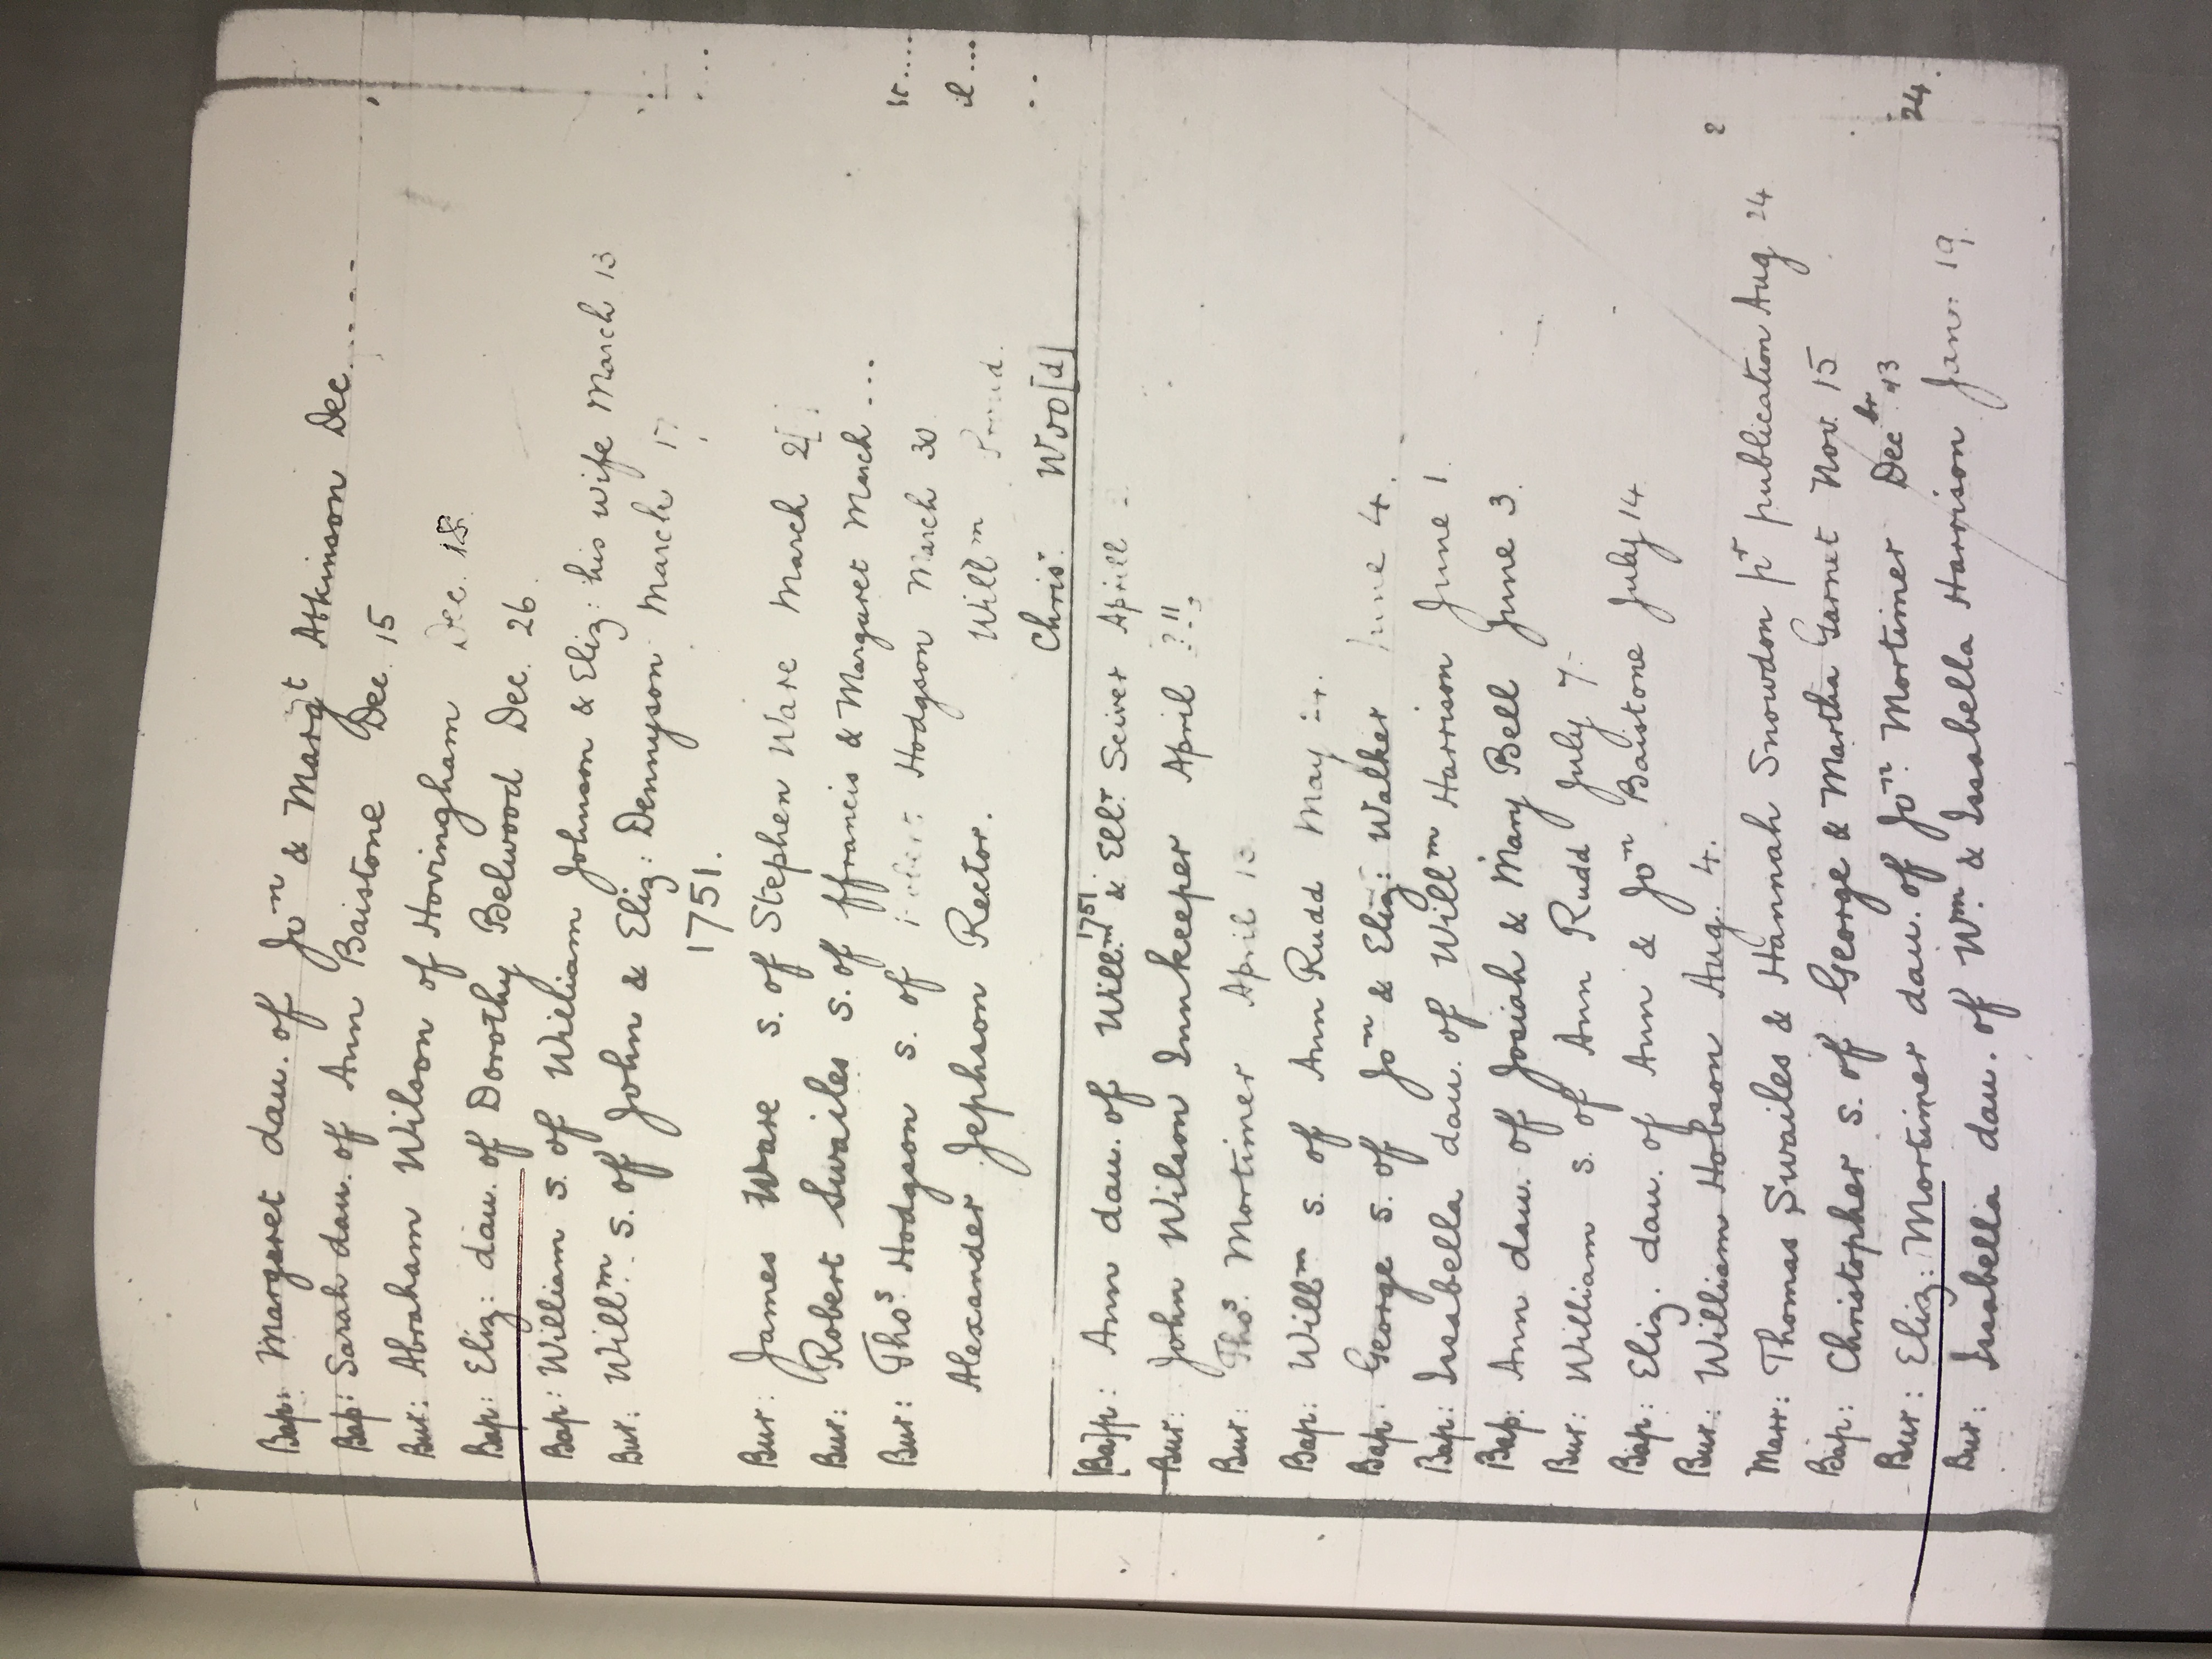 Bap: Margaret dau. of Jon & Margt Atkinson Dec.....
Bap: Sarah dau. of Ann Baistone Dec. 15
Bur: Abraham Wilson of Hovingham Dec. 18.
Bap: Eliz: dau. of Dorothy Belwood Dec. 26.
Bap: William s. of William Johnson & Eliz: his wife March 13
Bur: Willm s. of John & Eliz: Dennyson March 17
1751.
Bur: James Ware s. of Stephen Ware March 2[
Bur: Robert Swailes s. of ffrancis & Margaret March ...
Bur: Thos Hodgson s. of Hodgson March 30
Alexander Jephson Rector. Willm
Chrisr. Woo[d]
1751
[Ba]p: Ann dau. of Willm & Elt. Seiver Aprill
Bur: John Wilson Innkeeper April ?11,
Bur: Thos. Mortimer April
Bap: Willm s. of Ann Rudd May
Bap: George s. of Jon & Eliz: Walker June 4.
Bap: Issabella dau. of Willm Harrison June 1.
Bap: Ann dau. of Josiah & Mary Bell June 3.
Bur: William s. of Ann Rudd July 7.
Bap: Eliz. dau. of Ann & Jon Baistone July 14
Bur: William Hobson Aug. 4.
Marr: Thomas Swailes & Hannah Snowdon pr publication Aug 24
Bap: Christopher s. of George & Martha Garnet Nov. 15
Bur: Eliz: Mortimer dau. of Jon. Mortimer Decbr 13
Bur: Issabella dau. of Wm. & Issabella Harrison Jan: 19.
24.